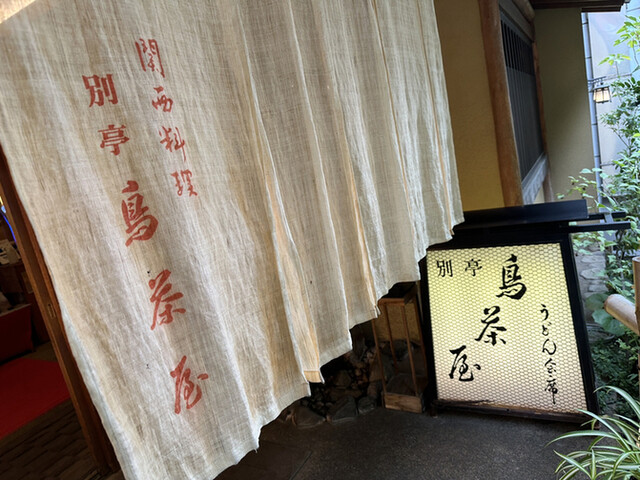 関西料理
別亭
鳥茶屋
別亭
鳥茶屋
うどん会席